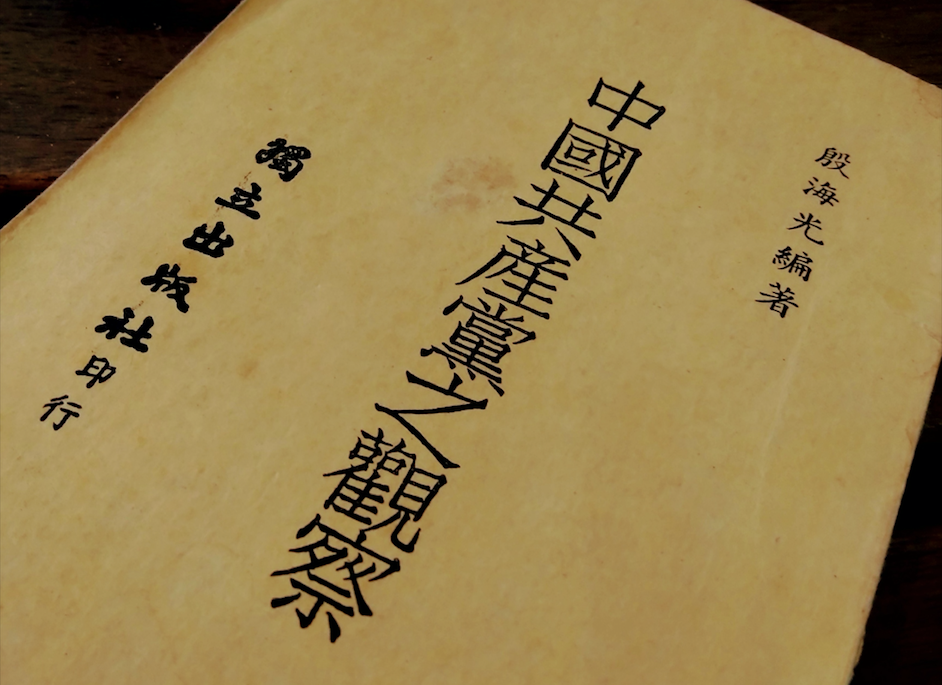 殷海光編著
中國共産黨之觀察
獨立出版社印行